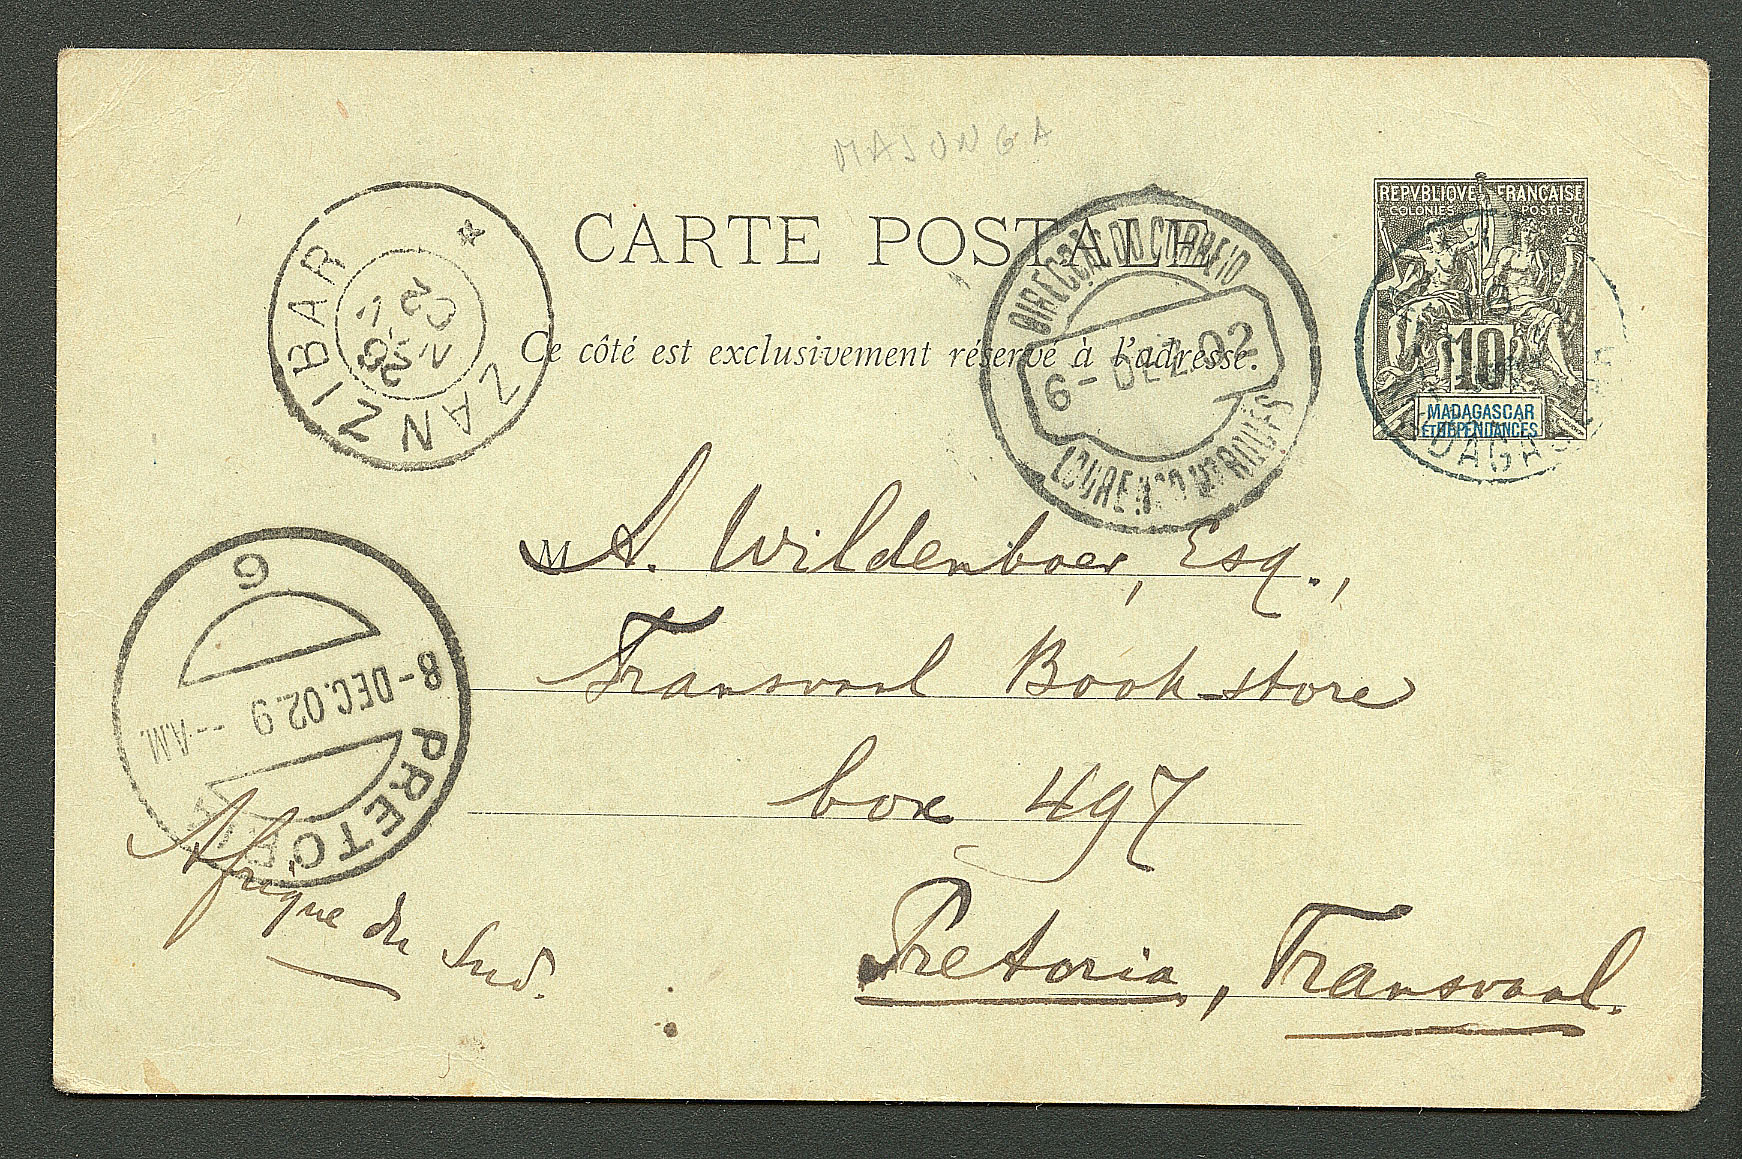 MAJUNGA
CARTE POSTALE
REPVBLIQVE FRANCAISE
COLONIES POSTES
10
MADAGASCAR
ET DEPENDANCES
Ce côté est exclusivement réservé à l'adresse.
ZANZIBAR
02
26
DIRECÇÃO DO CORREIO
6-DEZ.02
LOURENÇO MARQUES
M A. Wildenboer, Esq.,
Transvaal Book-store
box 497
Pretoria, Transvaal.
Afrique du Sud.
6
8-DEC.02.9 --A.M.
PRETORIA